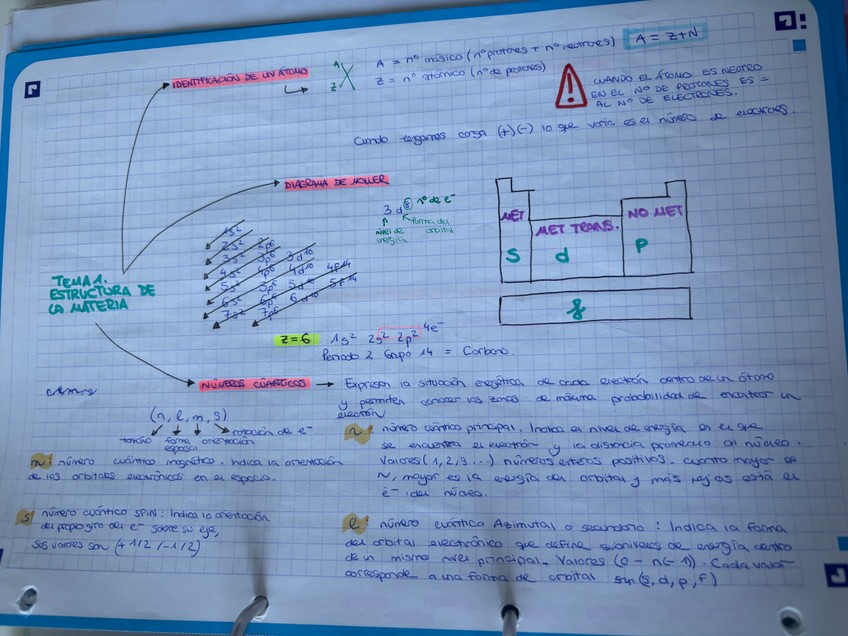 IDENTIFICACIÓN DE UN ÁTOMO
A
Z X
A = nº másico (nº protones + nº neutrones)
A = Z+N
Z = nº atómico (nº de protones)
CUANDO EL ÁTOMO ES NEUTRO
EN EL Nº DE PROTONES ES =
AL Nº DE ELECTRONES.
Cuando tengamos carga (+)(-) lo que varía es el número de electrones.
DIAGRAMA DE MOLLER
3 d⑧ nº de e⁻
nivel de energía
forma del orbital
1s²
2s² 2p⁶
3s² 3p⁶ 3d¹⁰
4s² 4p⁶ 4d¹⁰ 4f14
5s² 5p⁶ 5d¹⁰ 5f14
6s² 6p⁶ 6d¹⁰
7s² 7p⁶
MET
S
MET TRANS.
d
NO MET
P
f
TEMA 1.
ESTRUCTURA DE
LA MATERIA
Z=6 1s² 2s² 2p² 4e⁻
Periodo 2 Grupo 14 = Carbono.
NÚMEROS CÚANTICOS
Expresan la situación energética de cada electrón dentro de un átomo
y permiten conocer las zonas de máxima probabilidad de encontrar un
electrón
(n, l, m, s)
rotación de e⁻
tamaño forma orientación
espacial
n: número cuántico principal. Indica el nivel de energía en el que
se encuentra el electrón y la distancia promedio al núcleo.
Valores (1,2,3...) números enteros positivos. Cuanto mayor es
N, mayor es la energía del orbital y más lejos está el
e⁻ del núcleo.
m: número cuántico magnético. Indica la orientación
de los orbitales electrónicos en el espacio.
s número cuántico SPIN: Indica la orientación
del propio giro del e⁻ sobre su eje,
sus valores son (+1/2 / -1/2)
l: número cuántico Azimutal o secundario: Indica la forma
del orbital electrónico que define subniveles de energía dentro
de un mismo nivel principal. Valores (0 - n(-1)). Cada valor
corresponde a una forma de orbital (s, d, p, F)